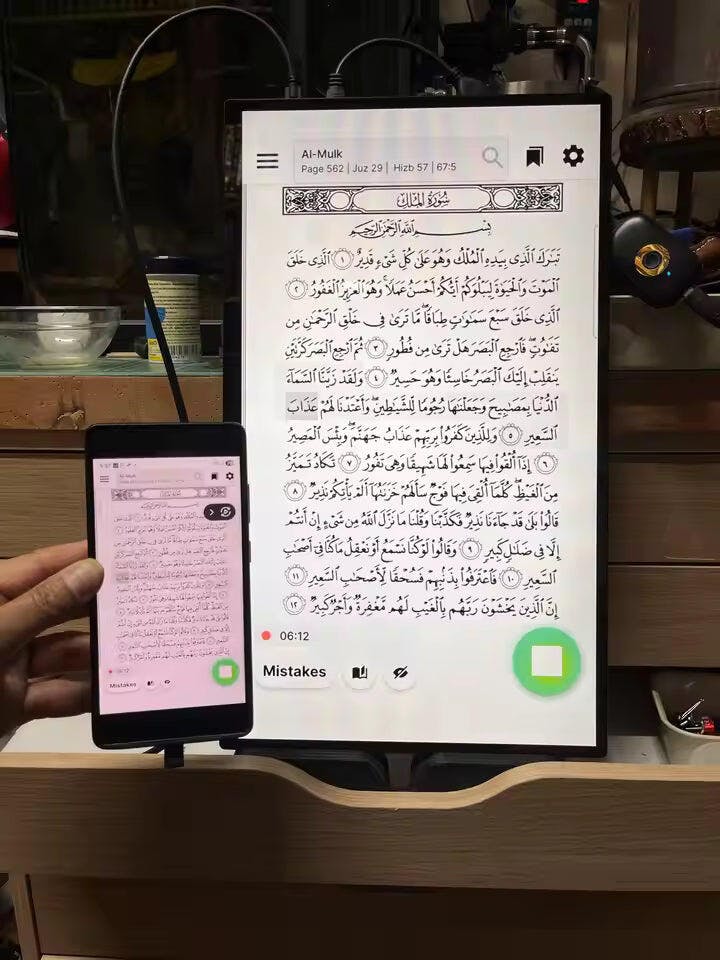 Al-Mulk
Page 562 | Juz 29 | Hizb 57 | 67:5
سُورَةُ المُلْكِ
بِسْمِ اللَّهِ الرَّحْمَٰنِ الرَّحِيمِ
تَبَارَكَ الَّذِي بِيَدِهِ الْمُلْكُ وَهُوَ عَلَىٰ كُلِّ شَيْءٍ قَدِيرٌ ١ الَّذِي خَلَقَ
الْمَوْتَ وَالْحَيَوٰةَ لِيَبْلُوَكُمْ أَيُّكُمْ أَحْسَنُ عَمَلًا وَهُوَ الْعَزِيزُ الْغَفُورُ ٢
الَّذِي خَلَقَ سَبْعَ سَمَاوَاتٍ طِبَاقًا مَّا تَرَىٰ فِي خَلْقِ الرَّحْمَٰنِ مِن
تَفَاوُتٍ فَارْجِعِ الْبَصَرَ هَلْ تَرَىٰ مِن فُطُورٍ ٣ ثُمَّ ارْجِعِ الْبَصَرَ كَرَّتَيْنِ
يَنقَلِبْ إِلَيْكَ الْبَصَرُ خَاسِئًا وَهُوَ حَسِيرٌ ٤ وَلَقَدْ زَيَّنَّا السَّمَاءَ
الدُّنْيَا بِمَصَابِيحَ وَجَعَلْنَاهَا رُجُومًا لِّلشَّيَاطِينِ وَأَعْتَدْنَا لَهُمْ عَذَابَ
السَّعِيرِ ٥ وَلِلَّذِينَ كَفَرُوا بِرَبِّهِمْ عَذَابُ جَهَنَّمَ وَبِئْسَ الْمَصِيرُ
٦ إِذَا أُلْقُوا فِيهَا سَمِعُوا لَهَا شَهِيقًا وَهِيَ تَفُورُ ٧ تَكَادُ تَمَيَّزُ
مِنَ الْغَيْظِ كُلَّمَا أُلْقِيَ فِيهَا فَوْجٌ سَأَلَهُمْ خَزَنَتُهَا أَلَمْ يَأْتِكُمْ نَذِيرٌ ٨
قَالُوا بَلَىٰ قَدْ جَاءَنَا نَذِيرٌ فَكَذَّبْنَا وَقُلْنَا مَا نَزَّلَ اللَّهُ مِن شَيْءٍ إِنْ أَنتُمْ
إِلَّا فِي ضَلَالٍ كَبِيرٍ ٩ وَقَالُوا لَوْ كُنَّا نَسْمَعُ أَوْ نَعْقِلُ مَا كُنَّا فِي أَصْحَابِ
السَّعِيرِ ١٠ فَاعْتَرَفُوا بِذَنبِهِمْ فَسُحْقًا لِّأَصْحَابِ السَّعِيرِ ١١
إِنَّ الَّذِينَ يَخْشَوْنَ رَبَّهُم بِالْغَيْبِ لَهُم مَّغْفِرَةٌ وَأَجْرٌ كَبِيرٌ ١٢
06:12
Mistakes
Al-Mulk
06:12
Mistakes